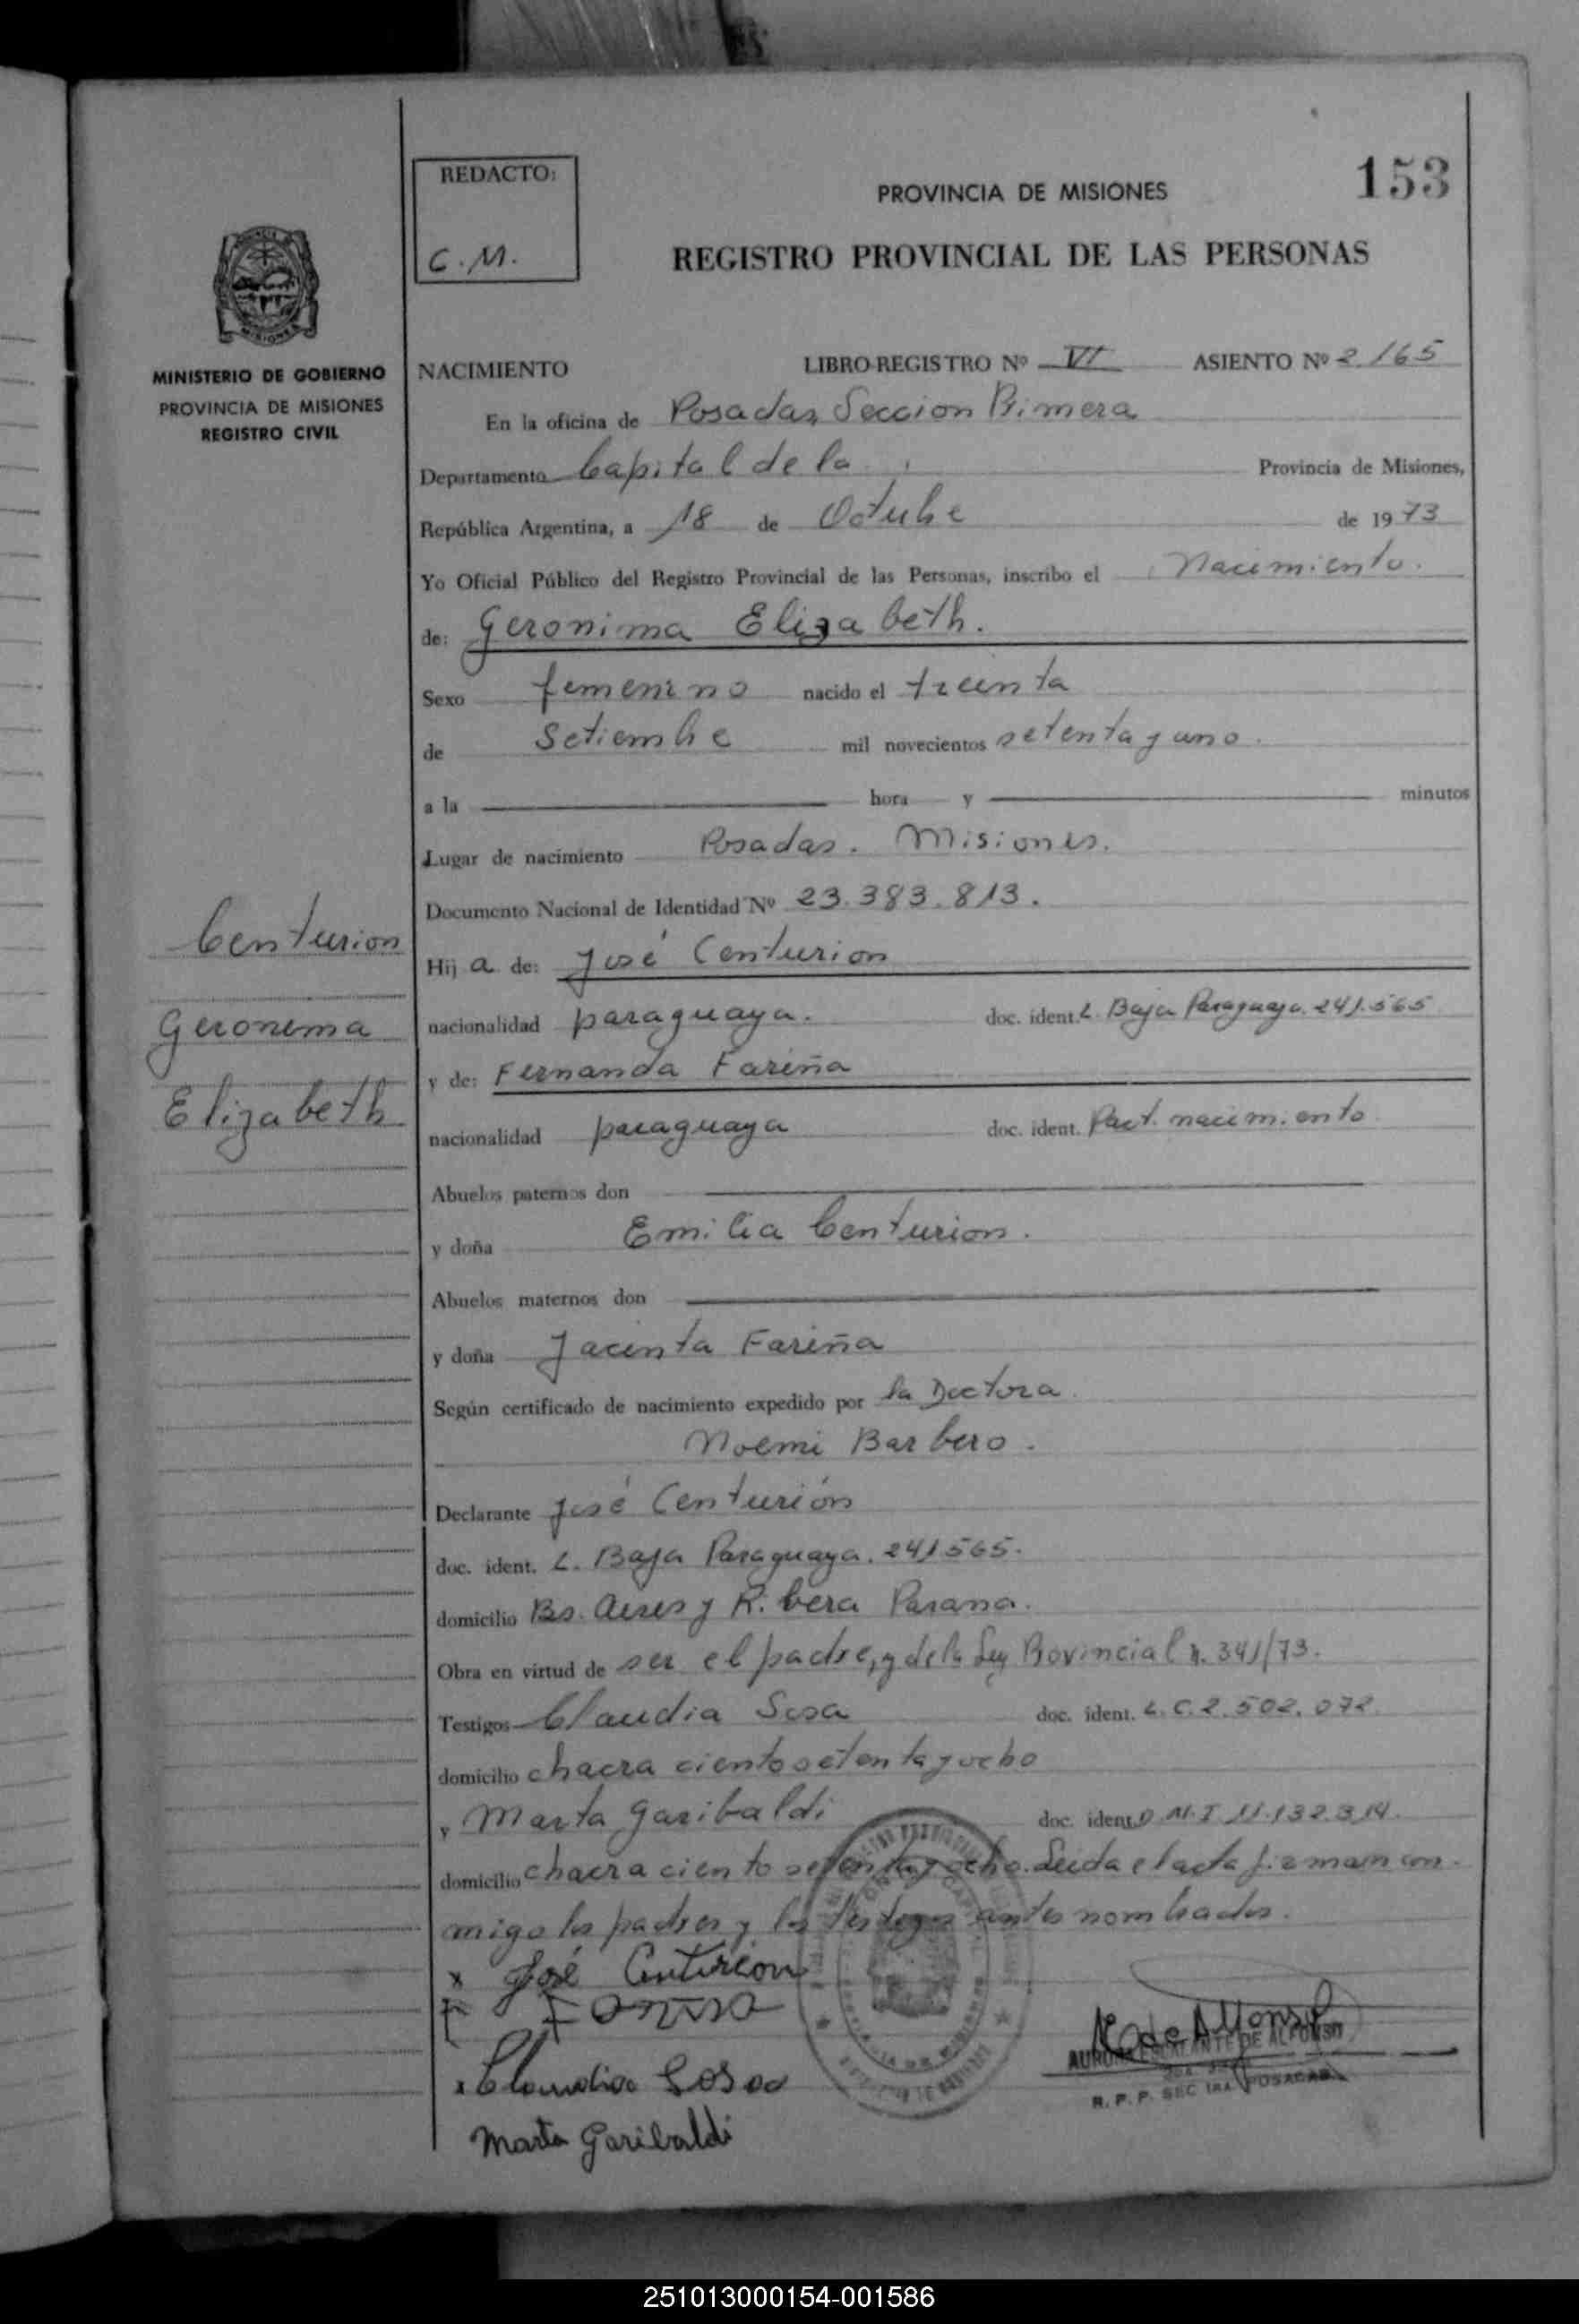 153
REDACTO:
C. M.
PROVINCIA DE MISIONES
REGISTRO PROVINCIAL DE LAS PERSONAS
MISIONES
MINISTERIO DE GOBIERNO
PROVINCIA DE MISIONES
REGISTRO CIVIL
NACIMIENTO LIBRO-REGISTRO Nº VI ASIENTO Nº 2165
En la oficina de Posadas, Seccion Primera
Departamento Capital de la Provincia de Misiones,
República Argentina, a 18 de Octubre de 1973
Yo Oficial Público del Registro Provincial de las Personas, inscribo el Nacimiento.
de: Geronima Elizabeth.
Sexo femenino nacido el treinta
de Setiembre mil novecientos setenta y uno.
a la hora y minutos
Lugar de nacimiento Posadas. Misiones.
Documento Nacional de Identidad Nº 23.383.813.
Centurion
Geronima
Elizabeth
Hij a de: José Centurion
nacionalidad paraguaya. doc. ident. L. Baja Paraguaya. 241.565
y de: Fernanda Fariña
nacionalidad paraguaya doc. ident. Part. nacimiento
Abuelos paternos don
y doña Emilia Centurion.
Abuelos maternos don
y doña Jacinta Fariña
Según certificado de nacimiento expedido por la Doctora
Noemi Barbero.
Declarante José Centurión
doc. ident. L. Baja Paraguaya. 241565.
domicilio Bs. Aires y Ribera Parana.
Obra en virtud de ser el padre, y de la Ley Provincial n. 341/73.
Testigos Claudia Sosa doc. ident. L.C. 2.502.072.
domicilio chacra ciento setenta y ocho
y Marta Garibaldi doc. ident. D.N.I 11.132.314.
domicilio chacra ciento setenta y ocho. Leida el acta firman con-
migo los padres y los testigos antes nombrados.
x José Centurion
Claudia Sosa
Marta Garibaldi
A E de Alfonso
AURORA ESCALANTE DE ALFONSO
R. P. P. SEC 1RA. POSADAS
251013000154-001586